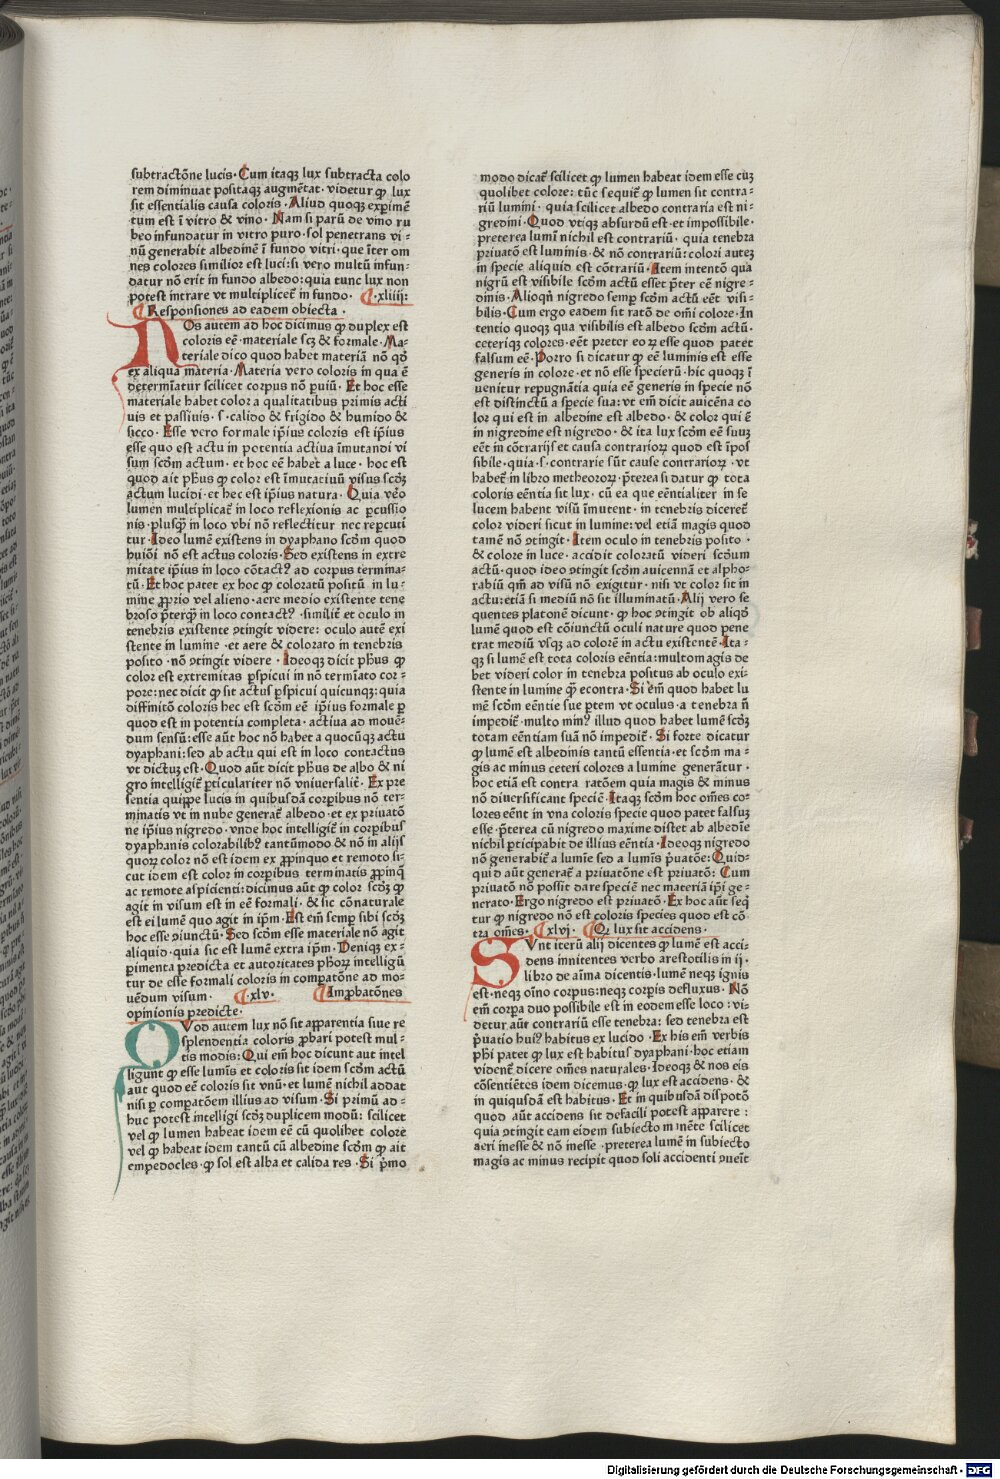 subtractōne lucis · Cum itaqꝫ lux subtracta colo
rem diminuat positaqꝫ augmētat · videtur ꝙ lux
sit essentialis causa coloris · Aliud quoqꝫ experimē
tum est ī vitro & vino · Nam si parū de vino ru
beo infundatur in vitro puro · sol penetrans vi-
nū generabit albedinē ī fundo vitri · que īter om
nes colores similior est luci : si vero multū infun-
datur nō erit in fundo albedo : quia tunc lux non
potest intrare vt multiplicet̄ in fundo · ⸿ ·xliiij:
⸿ Responsiones ad eadem obiecta ·
NOs autem ad hoc dicimus ꝙ duplex est
coloris eē · materiale scꝫ & formale · Ma-
teriale dico quod habet materiā nō qđ
ex aliqua materia · Materia vero coloris in qua ē
determīatur scilicet corpus nō puiū · Et hoc esse
materiale habet color a qualitatibus primis acti
uis et passiuis · s · calido & frigido & humido &
sicco · Esse vero formale ip̄ius coloris est ip̄ius
esse quo est actu in potentia actiua īmutandi vi
sum scđm actum · et hoc eē habet a luce · hoc est
quod ait ph̄us ꝙ color est īmutatiuū visus scđꝫ
actum lucidi · et hec est ip̄ius natura · Quia v̄o
lumen multiplicat̄ in loco reflexionis ac ꝑcussio
nis · plusqꝫ̄ in loco vbi nō reflectitur nec reꝑcuti
tur · Ideo lumē existens in dyaphano scđm quod
huiōi nō est actus coloris · Sed existens in extre
mitate ip̄ius in loco cōtactꝰ ad corpus termina-
tū · Et hoc patet ex hoc ꝙ coloratū positū in lu-
mine ꝓprio vel alieno · aere medio existente tene
broso p̄terqꝫ̄ in loco contactꝰ · similit̄ et oculo in
tenebris existente ꝯtingit videre : oculo autē exi
stente in lumine · et aere & colorato in tenebris
posito · nō ꝯtingit videre · Ideoqꝫ dicit ph̄us ꝙ
color est extremitas ꝑspicui in nō termīato cor-
pore : nec dicit ꝙ sit actus ꝑspicui quicunqꝫ : quia
diffinitō coloris hec est scđm eē ip̄ius formale ꝑ
quod est in potentia completa · actiua ad mouē-
dum sensū : esse aūt hoc nō habet a quocūqꝫ actu
dyaphani : sed ab actu qui est in loco contactus
vt dictuꝫ est · Quod aūt dicit ph̄us de albo & ni
gro intelligit̄ ꝑticulariter nō vniuersalit̄ · Ex pre
sentia quippe lucis in quibusdā corꝑibus nō ter-
minatis vt in nube generat̄ albedo · et ex priuatō
ne ip̄ius nigredo · vnde hoc intelligit̄ in corꝑibus
dyaphanis colorabilibꝰ tantūmodo & nō in alijs
quoꝝ color nō est idem ex ꝓpinquo et remoto si-
cut idem est color in corꝑibus terminatis ꝓpinqꝫ
ac remote aspicienti : dicimus aūt ꝙ color scđꝫ ꝙ
agit in visum est in eē formali · & sic cōnaturale
est ei lumē quo agit in ip̄m · Est em̄ semꝑ sibi scđꝫ
hoc esse ꝯiunctū · Sed scđm esse materiale nō agit
aliquid · quia sic est lumē extra ip̄m · Deniqꝫ ex-
ꝑimenta predicta et autoritates ph̄oꝝ intelligū
tur de esse formali coloris in compatōne ad mo-
uēdum visum · ⸿ ·xlv· ⸿ Imꝓbatōnes
opinionis predicte ·
QVod autem lux nō sit apparentia siue re
splendentia coloris ꝓbari potest mul-
tis modis : Qui em̄ hoc dicunt aut intel
ligunt ꝙ esse lumīs et coloris sit idem scđm actū
aut quod eē coloris sit vnū · et lumē nichil addat
nisi ꝑ compatōem illius ad visum · Si primū ad-
huc potest intelligi scđꝫ duplicem modū : scilicet
vel ꝙ lumen habeat idem eē cū quolibet colore
vel ꝙ habeat idem tantū cū albedine scđm ꝙ ait
empedocles · ꝙ sol est alba et calida res · Si p̄mo
modo dicat̄ scilicet ꝙ lumen habeat idem esse cuꝫ
quolibet colore : tūc sequit̄ ꝙ lumen sit contra-
riū lumini · quia scilicet albedo contraria est ni-
gredini · Quod vtiqꝫ absurdū est · et impossibile ·
preterea lumī nichil est contrariū · quia tenebra
priuatō est luminis · & nō contrariū : colori auteꝫ
in specie aliquid est cōtrariū · Item intentō qua
nigrū est visibile scđm actū esset p̄ter eē nigre-
dinis · Alioqn̄ nigredo semꝑ scđm actū eēt visi-
bilis · Cum ergo eadem sit ratō de om̄i colore · In
tentio quoqꝫ qua visibilis est albedo scđm actū ·
ceteriqꝫ colores · eēt preter eoꝝ esse quod patet
falsum eē · Porro si dicatur ꝙ eē luminis est esse
generis in colore · et nō esse specierū · hic quoqꝫ ī
uenitur repugnātia quia eē generis in specie nō
est distinctū a specie sua : vt em̄ dicit auicēna co
lor qui est in albedine est albedo · & color qui ē
in nigredine est nigredo · & ita lux scđm eē suuꝫ
eēt in cōtrarijs et causa contrarioꝝ quod est īpos
sibile · quia · s · contrarie sūt cause contrarioꝝ · vt
habet̄ in libro metheoroꝝ · p̄terea si datur ꝙ tota
coloris eēntia sit lux · cū ea que eēntialiter in se
lucem habent visū īmutent · in tenebris diceret̄
color videri sicut in lumine : vel etiā magis quod
tamē nō ꝯtingit · Item oculo in tenebris posito ·
& colore in luce · accidit coloratū videri scđum
actū · quod ideo ꝯtingit scđm auicennā et alpho-
rabiū qm̄ ad visū nō exigitur · nisi vt color sit in
actu : etiā si mediū nō sit illuminatū · Alij vero se
quentes platonē dicunt · ꝙ hoc ꝯtingit ob aliqđ
lumē quod est cōiunctū oculi nature quod pene
trat mediū vsqꝫ ad colorē in actu existentē · Ita-
qꝫ si lumē est tota coloris eēntia : multomagis de
bet videri color in tenebra positus ab oculo exi-
stente in lumine qꝫ̄ econtra · Si em̄ quod habet lu
mē scđm eēntie sue ꝑtem vt oculus · a tenebra n̄
impedit̄ · multo minꝰ illud quod habet lumē scđꝫ
totam eēntiam suā nō impedit̄ · Si forte dicatur
ꝙ lumē est albedinis tantū essentia · et scđm ma-
gis ac minus ceteri colores a lumine generāt̄ur ·
hoc etiā est contra ratōem quia magis & minus
nō diuersificant speciē · Itaqꝫ scđm hoc om̄es co-
lores eēnt in vna coloris specie quod patet falsuꝫ
esse · p̄terea cū nigredo maxime distet ab albedīe
nichil ꝑticipabit de illius eēntia · Ideoqꝫ nigredo
nō generabit̄ a lumīe sed a lumīs p̄uatōe : Quid-
quid aūt generat̄ a priuatōne est priuatō : Cum
priuatō nō possit dare speciē nec materiā ip̄i ge-
nerato · Ergo nigredo est priuatō · Ex hoc aūt seqꝫ
tur ꝙ nigredo nō est coloris species quod est cō
tra om̄es · ⸿ ·xlvj· ⸿ Q lux sit accidens ·
SVnt iterū alij dicentes ꝙ lumē est acci-
dens innitentes verbo arestotilis in ij ·
libro de aīma dicentis · lumē neqꝫ ignis
est · neqꝫ oīno corpus : neqꝫ corꝑis defluxus · Nō
em̄ corꝑa duo possibile est in eodem esse loco : vi-
detur aūt contrariū esse tenebra : sed tenebra est
p̄uatio huiꝰ habitus ex lucido · Ex his em̄ verbis
ph̄i patet ꝙ lux est habitus dyaphani · hoc etiam
vident̄ dicere om̄es naturales · Ideoqꝫ & nos eis
cōsentiētes idem dicemus · ꝙ lux est accidens · &
in quiqusdā est habitus · Et in quibusdā dispotō
quod aūt accidens sit defacili potest apparere :
quia ꝯtingit eam eidem subiecto manēte scilicet
aeri inesse & nō inesse · preterea lumē in subiecto
magis ac minus recipit quod soli accidenti ꝯueīt
Digitalisierung gefördert durch die Deutsche Forschungsgemeinschaft - DFG